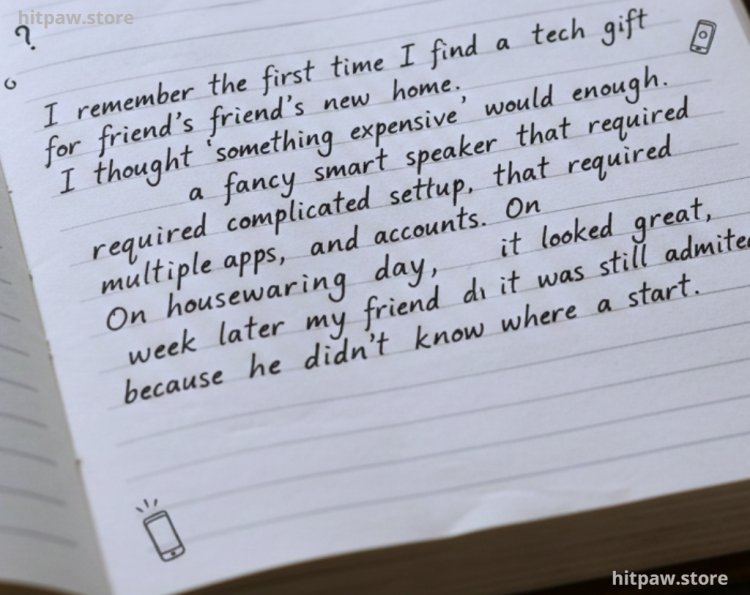 hitpaw.store
?
I remember the first time I find a tech gift
for friend's friend's new home.
I thought 'something expensive' would enough.
a fancy smart speaker that required
required complicated settup, that required
multiple apps, and accounts. On
On housewaring day, it looked great,
week later my friend di it was still admite
because he didn't know where a start.
hitpaw.store